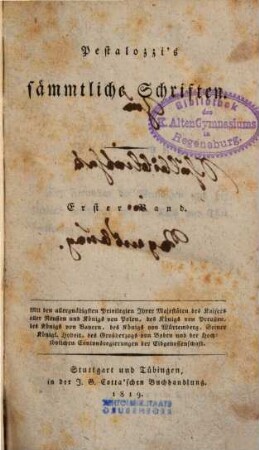 Pestalozzi's
sämmtliche Schriften.
Bibliothek
des
K. Alten Gymnasiums
in
Regensburg.
Erster Band.
Mit den allergnädigsten Privilegien Ihrer Majestäten des Kaisers
aller Reussen und Königs von Polen, des Königs von Preussen,
des Königs von Bayern, des Königs von Würtemberg, Seiner
Königl. Hoheit, des Grossherzogs von Baden und der Hoch-
löblichen Cantonsregierungen der Eidgenossenschaft.
Stuttgart und Tübingen,
in der J. G. Cotta'schen Buchhandlung.
1819.